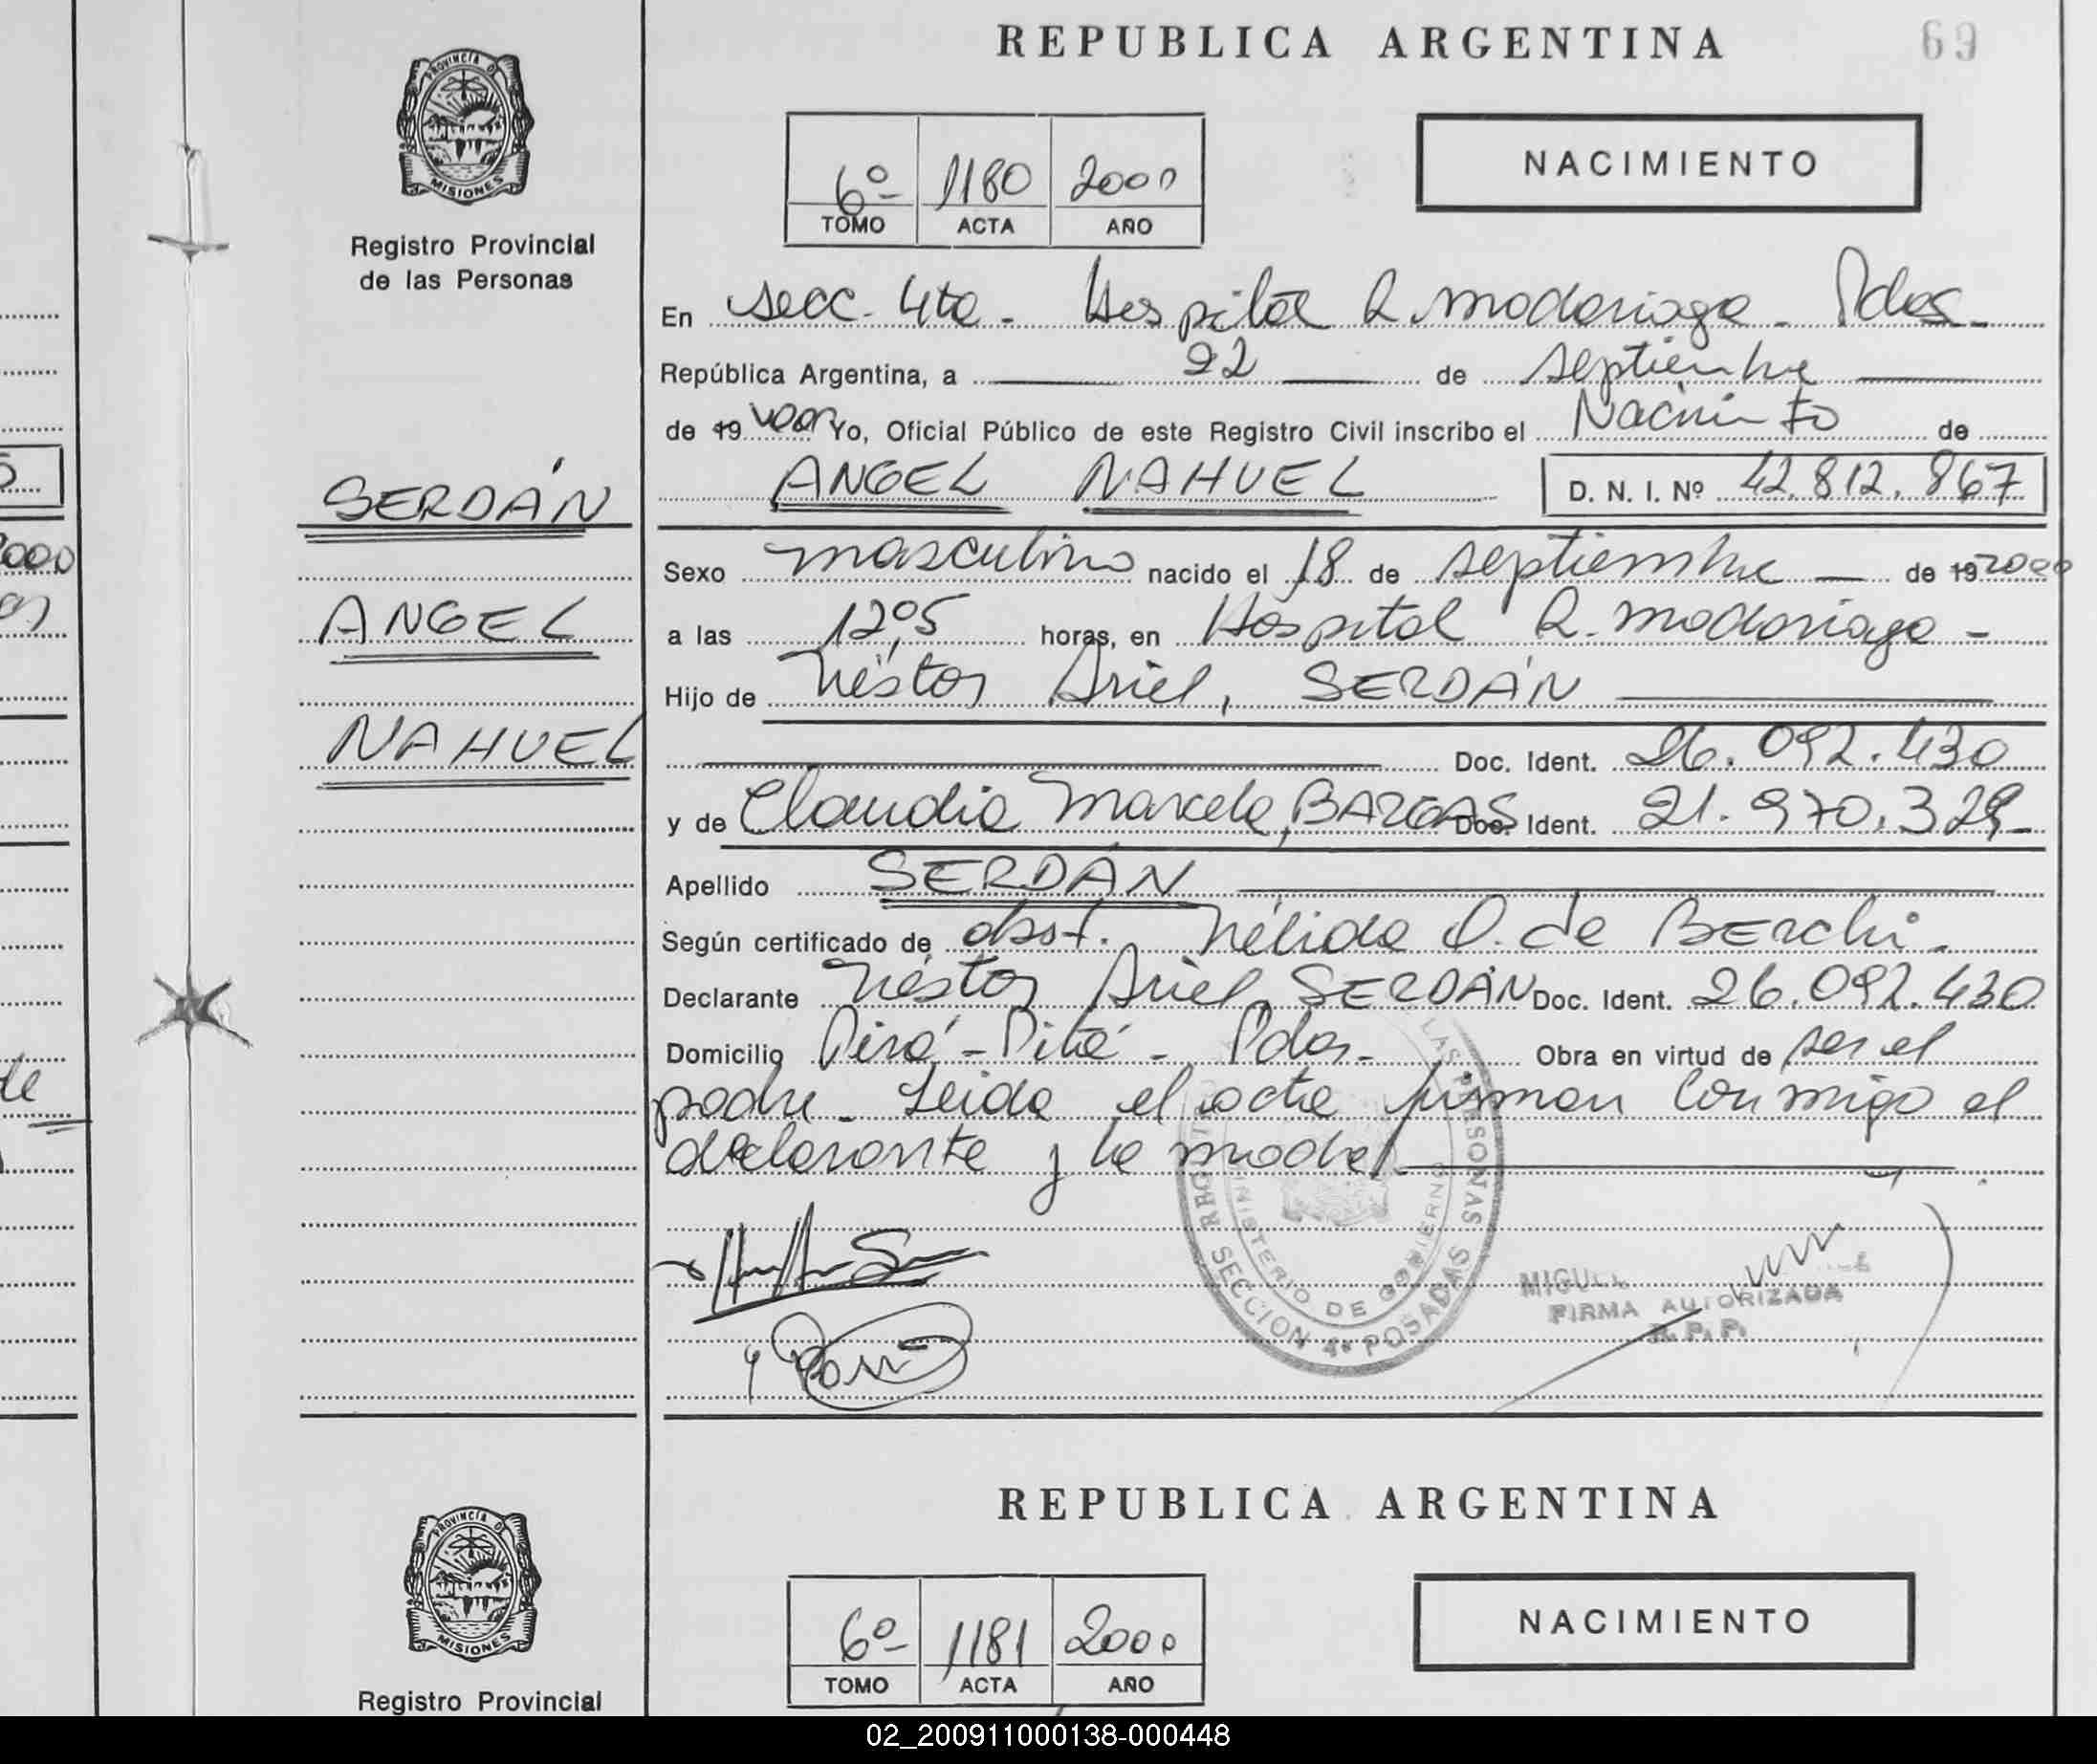 REPUBLICA ARGENTINA
69
PROVINCIA DE
MISIONES
Registro Provincial
de las Personas
6º 1180 2000
TOMO ACTA AÑO
NACIMIENTO
En secc. 4ta. Hospital R. Madariaga - Pdas.
República Argentina, a 22 de septiembre
de 19 Yo, Oficial Público de este Registro Civil inscribo el Nacimiento de
ANGEL NAHUEL D. N. I. Nº 42.812.867
SERDÁN
ANGEL
NAHUEL
Sexo masculino nacido el 18 de septiembre de 19 2000
a las 12,05 horas, en Hospital R. Madariaga -
Hijo de Néstor Ariel, SERDÁN
Doc. Ident. 26.092.430
y de Claudia Marcela, BARGAS Doc. Ident. 21.970.329
Apellido SERDÁN
Según certificado de obst. Nélida O. de BERCHI -
Declarante Néstor Ariel, SERDÁN Doc. Ident. 26.092.430
Domicilio Pirá-Pitá - Pdas. Obra en virtud de ser el
padre. Leida el acta firman conmigo el
declarante y la madre
LAS PERSONAS
MINISTERIO DE GOBIERNO
SECCION 4ª POSADAS
MIGUEL
FIRMA AUTORIZADA
R. P. P.
REPUBLICA ARGENTINA
PROVINCIA DE
MISIONES
Registro Provincial
6º 1181 2000
TOMO ACTA AÑO
NACIMIENTO
02_200911000138-000448